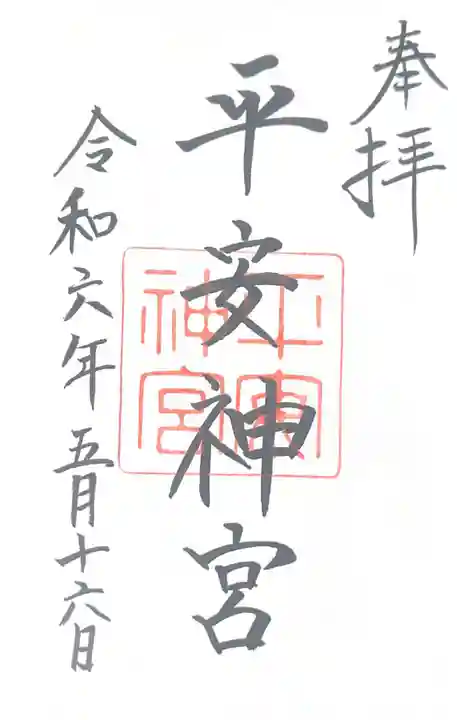 奉拝
平安神宮
平安神宮
令和六年五月十六日